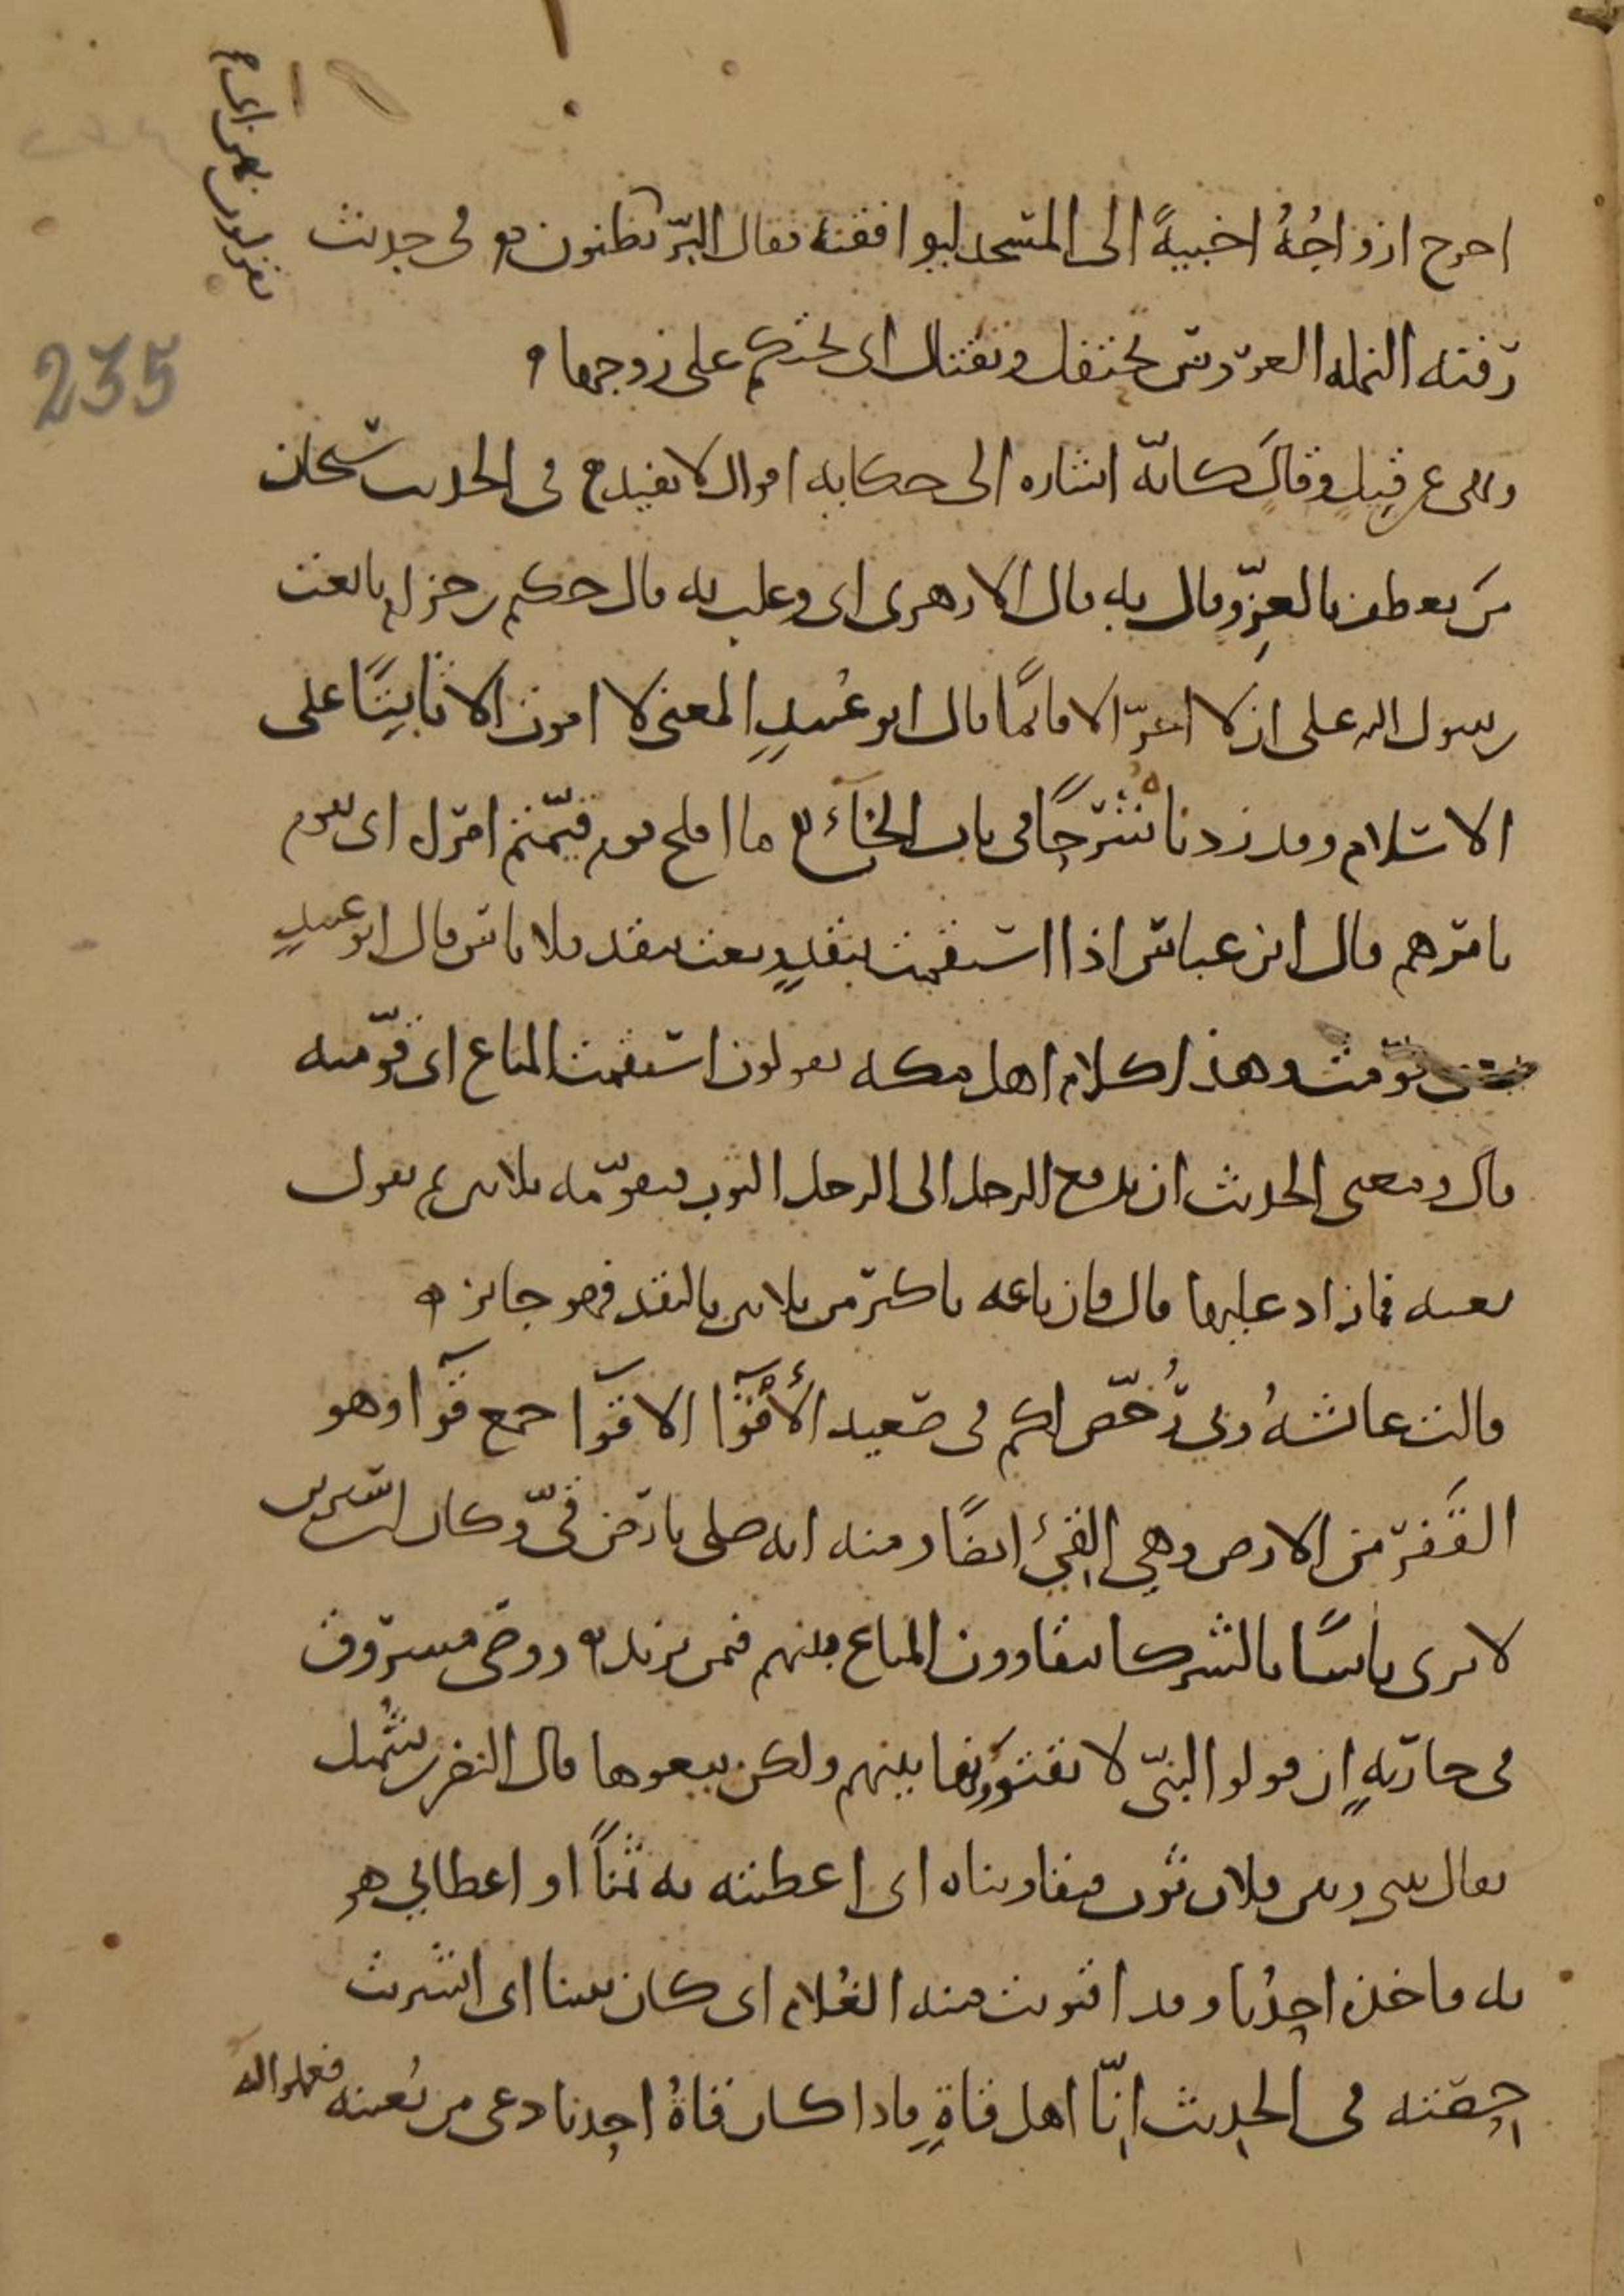 اخرج ازواجُهُ اخبيةً الى المسجد ليوافقنه فقال البرّ تظنون ه و في حديث
رقية النملة العروس تحتفل وتقتال اى تحتكم على زوجها ه
ونهى عن قِيلٍ وقالٍ كانّه اشاره الى حكاية اقوال لا تفيد ه في الحديث سبحان
من تعطف بالعِزّ وقال به قال الازهرى اى وغلب به قال حكيم بن حزام بايعت
رسول الله على ان لا اخرّ الا قائمًا قال ابو عُبيدٍ المعنى لا اموت الا ثابتًا على
الاسلام وقد زدنا شرحًا في باب الخاء ه ما افلح قوم قيّمتهم امراه اى تقوم
بامرهم قال ابن عباس اذا استقمت بنقدٍ وبعت بنقد فلا باس قال ابو عبيدٍ
قوّمت وهذا كلام اهل مكه يقولون استقمت المتاع اى قوّمته
قال ومعنى الحديث ان يدفع الرجل الى الرجل الثوب فيقوّمه بثلاثين ثم يقول
بعه فما زاد عليها قال فان باعه باكثر من ثلاثين بالنقد فهو جائز ه
قالت عائشهُ وبي رُخّص لكم في صعيد الأقوَآ الاقوَآ جمع قوَآ وهو
القَفْر من الارض وهي القِيّ ايضًا ومنه انه صلى بارض قِيّ وكان ابن سيرين
لا يرى باسًا بالشركا يتقاوون المتاع بينهم فمن يزيد ه ووصى مسروق
في جاريةٍ ان قولوا لبنيّ لا تقتوُوها بينهم ولكن بيعوها قال النضر بن شُميل
يقال بيني وبين فلان ثوب فتقاويناه اى اعطيته به ثمنًا او اعطاني هو
به فاخذه احدُنا وقد اقتويت منه الغُلام اى كان بيننا اى اشتريت
حِصّته في الحديث انّا اهل قاةٍ فاذا كان قاةُ احدنا دعى من يُعينه فعملوا له
235